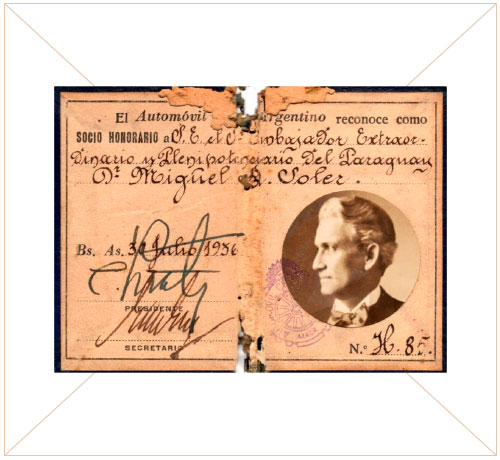 El Automóvil Argentino reconoce como
SOCIO HONORARIO a S. E. el Sr. Embajador Extraor-
dinario y Plenipotenciario Del Paraguay
Dr. Miguel A. Soler.
Bs. As. 30 Julio 1936
PRESIDENTE
SECRETARIO
N.º H. 85.